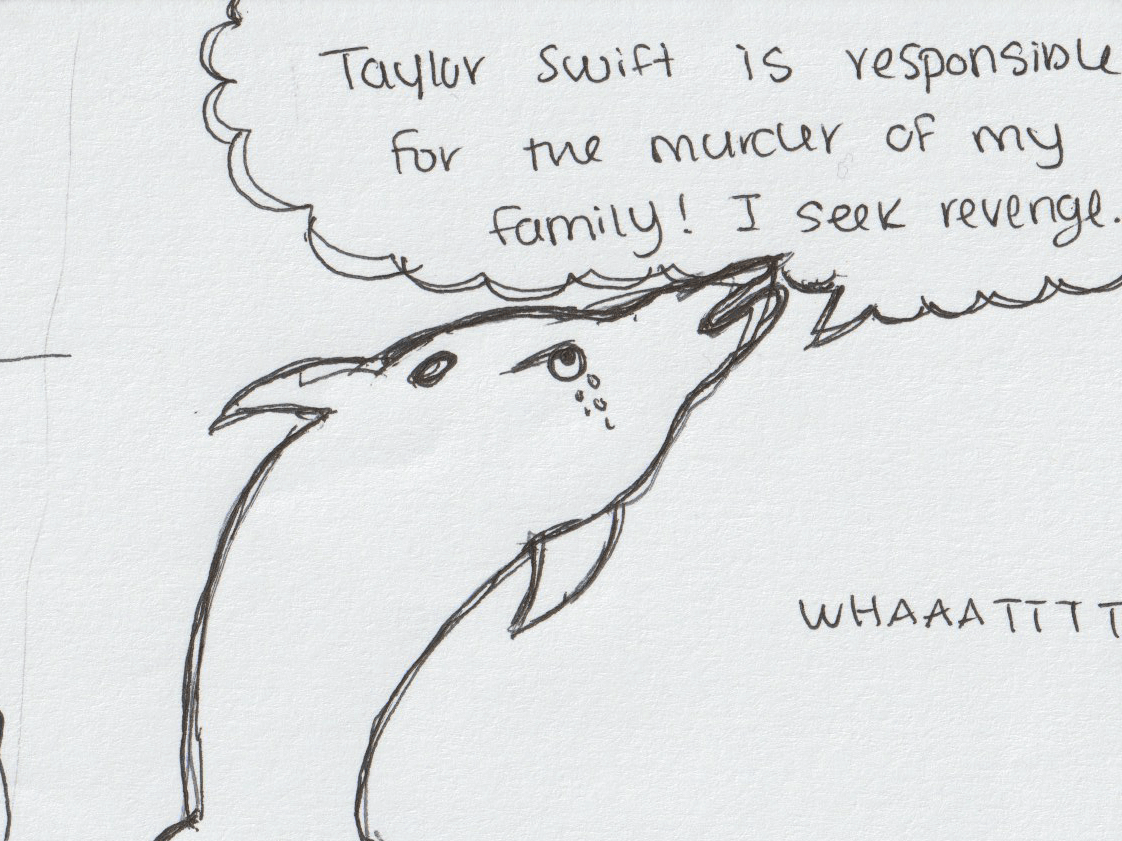 Taylor Swift is responsible
for the murder of my
family! I seek revenge.
WHAAATTTT